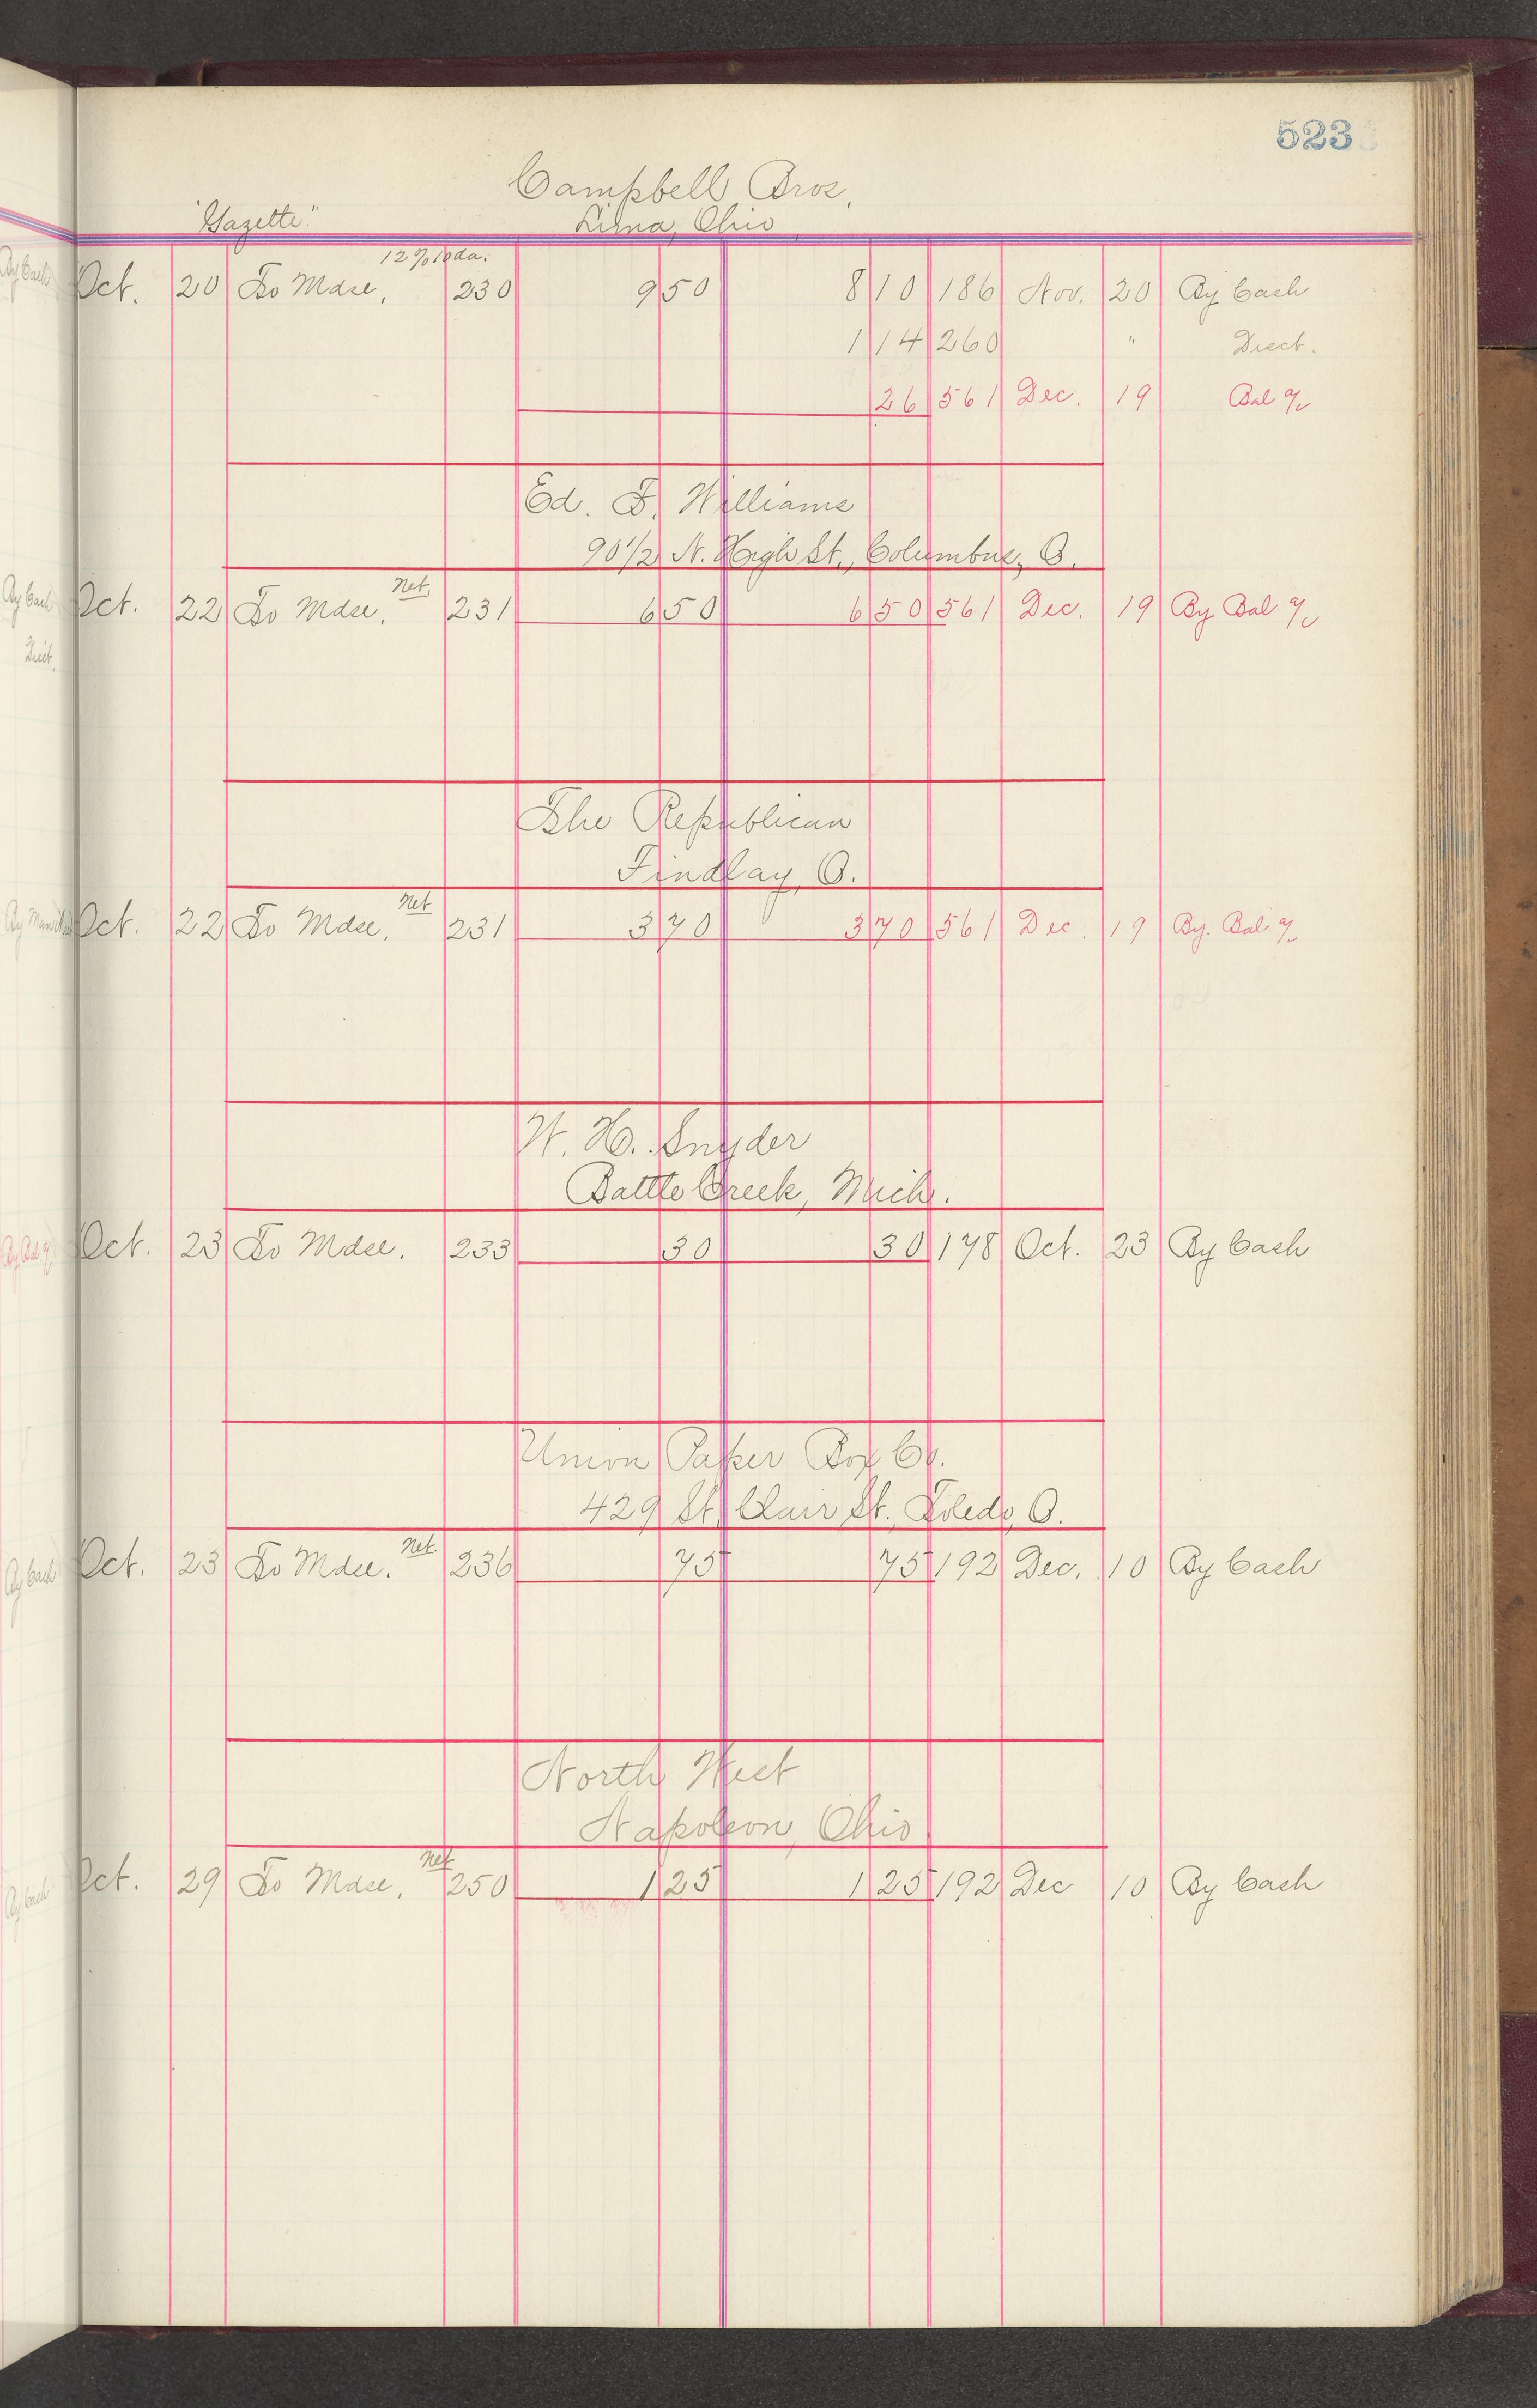 523
Campbell Bros.
"Gazette" Lima, Ohio
12% 10 da.
Oct. 20 To Mdse. 230 9 50 8 10 186 Nov. 20 By Cash
1 14 260 " Disct.
26 561 Dec. 19 Bal a/c
Ed. F. Williams
90 1/2 N. High St., Columbus, O.
Net
Oct. 22 To Mdse. 231 6 50 6 50 561 Dec. 19 By Bal a/c
The Republican
Findlay, O.
Net
Oct. 22 To Mdse. 231 3 70 3 70 561 Dec. 19 By Bal a/c
W. H. Snyder
Battle Creek, Mich.
Oct. 23 To Mdse. 233 30 30 178 Oct. 23 By Cash
Union Paper Box Co.
429 St. Clair St., Toledo, O.
Net.
Oct. 23 To Mdse. 236 75 75 192 Dec. 10 By Cash
North West
Napoleon, Ohio
Net
Oct. 29 To Mdse. 250 1 25 1 25 192 Dec 10 By Cash
By Cash
By Cash
Disct.
By Bal a/c
By Cash
By Cash